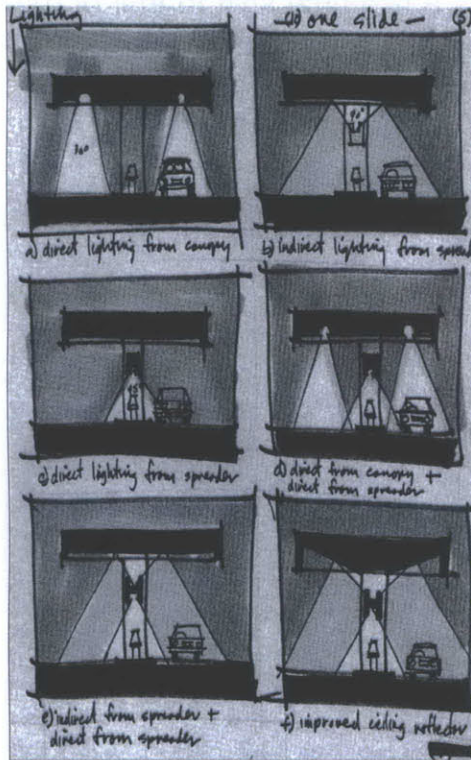 Lighting
(1) one slide —
a) direct lighting from canopy
b) indirect lighting from spread
30°
90°
c) direct lighting from spreader
d) direct from canopy +
direct from spreader
45
e) indirect from spreader +
direct from spreader
f) improved ceiling reflector